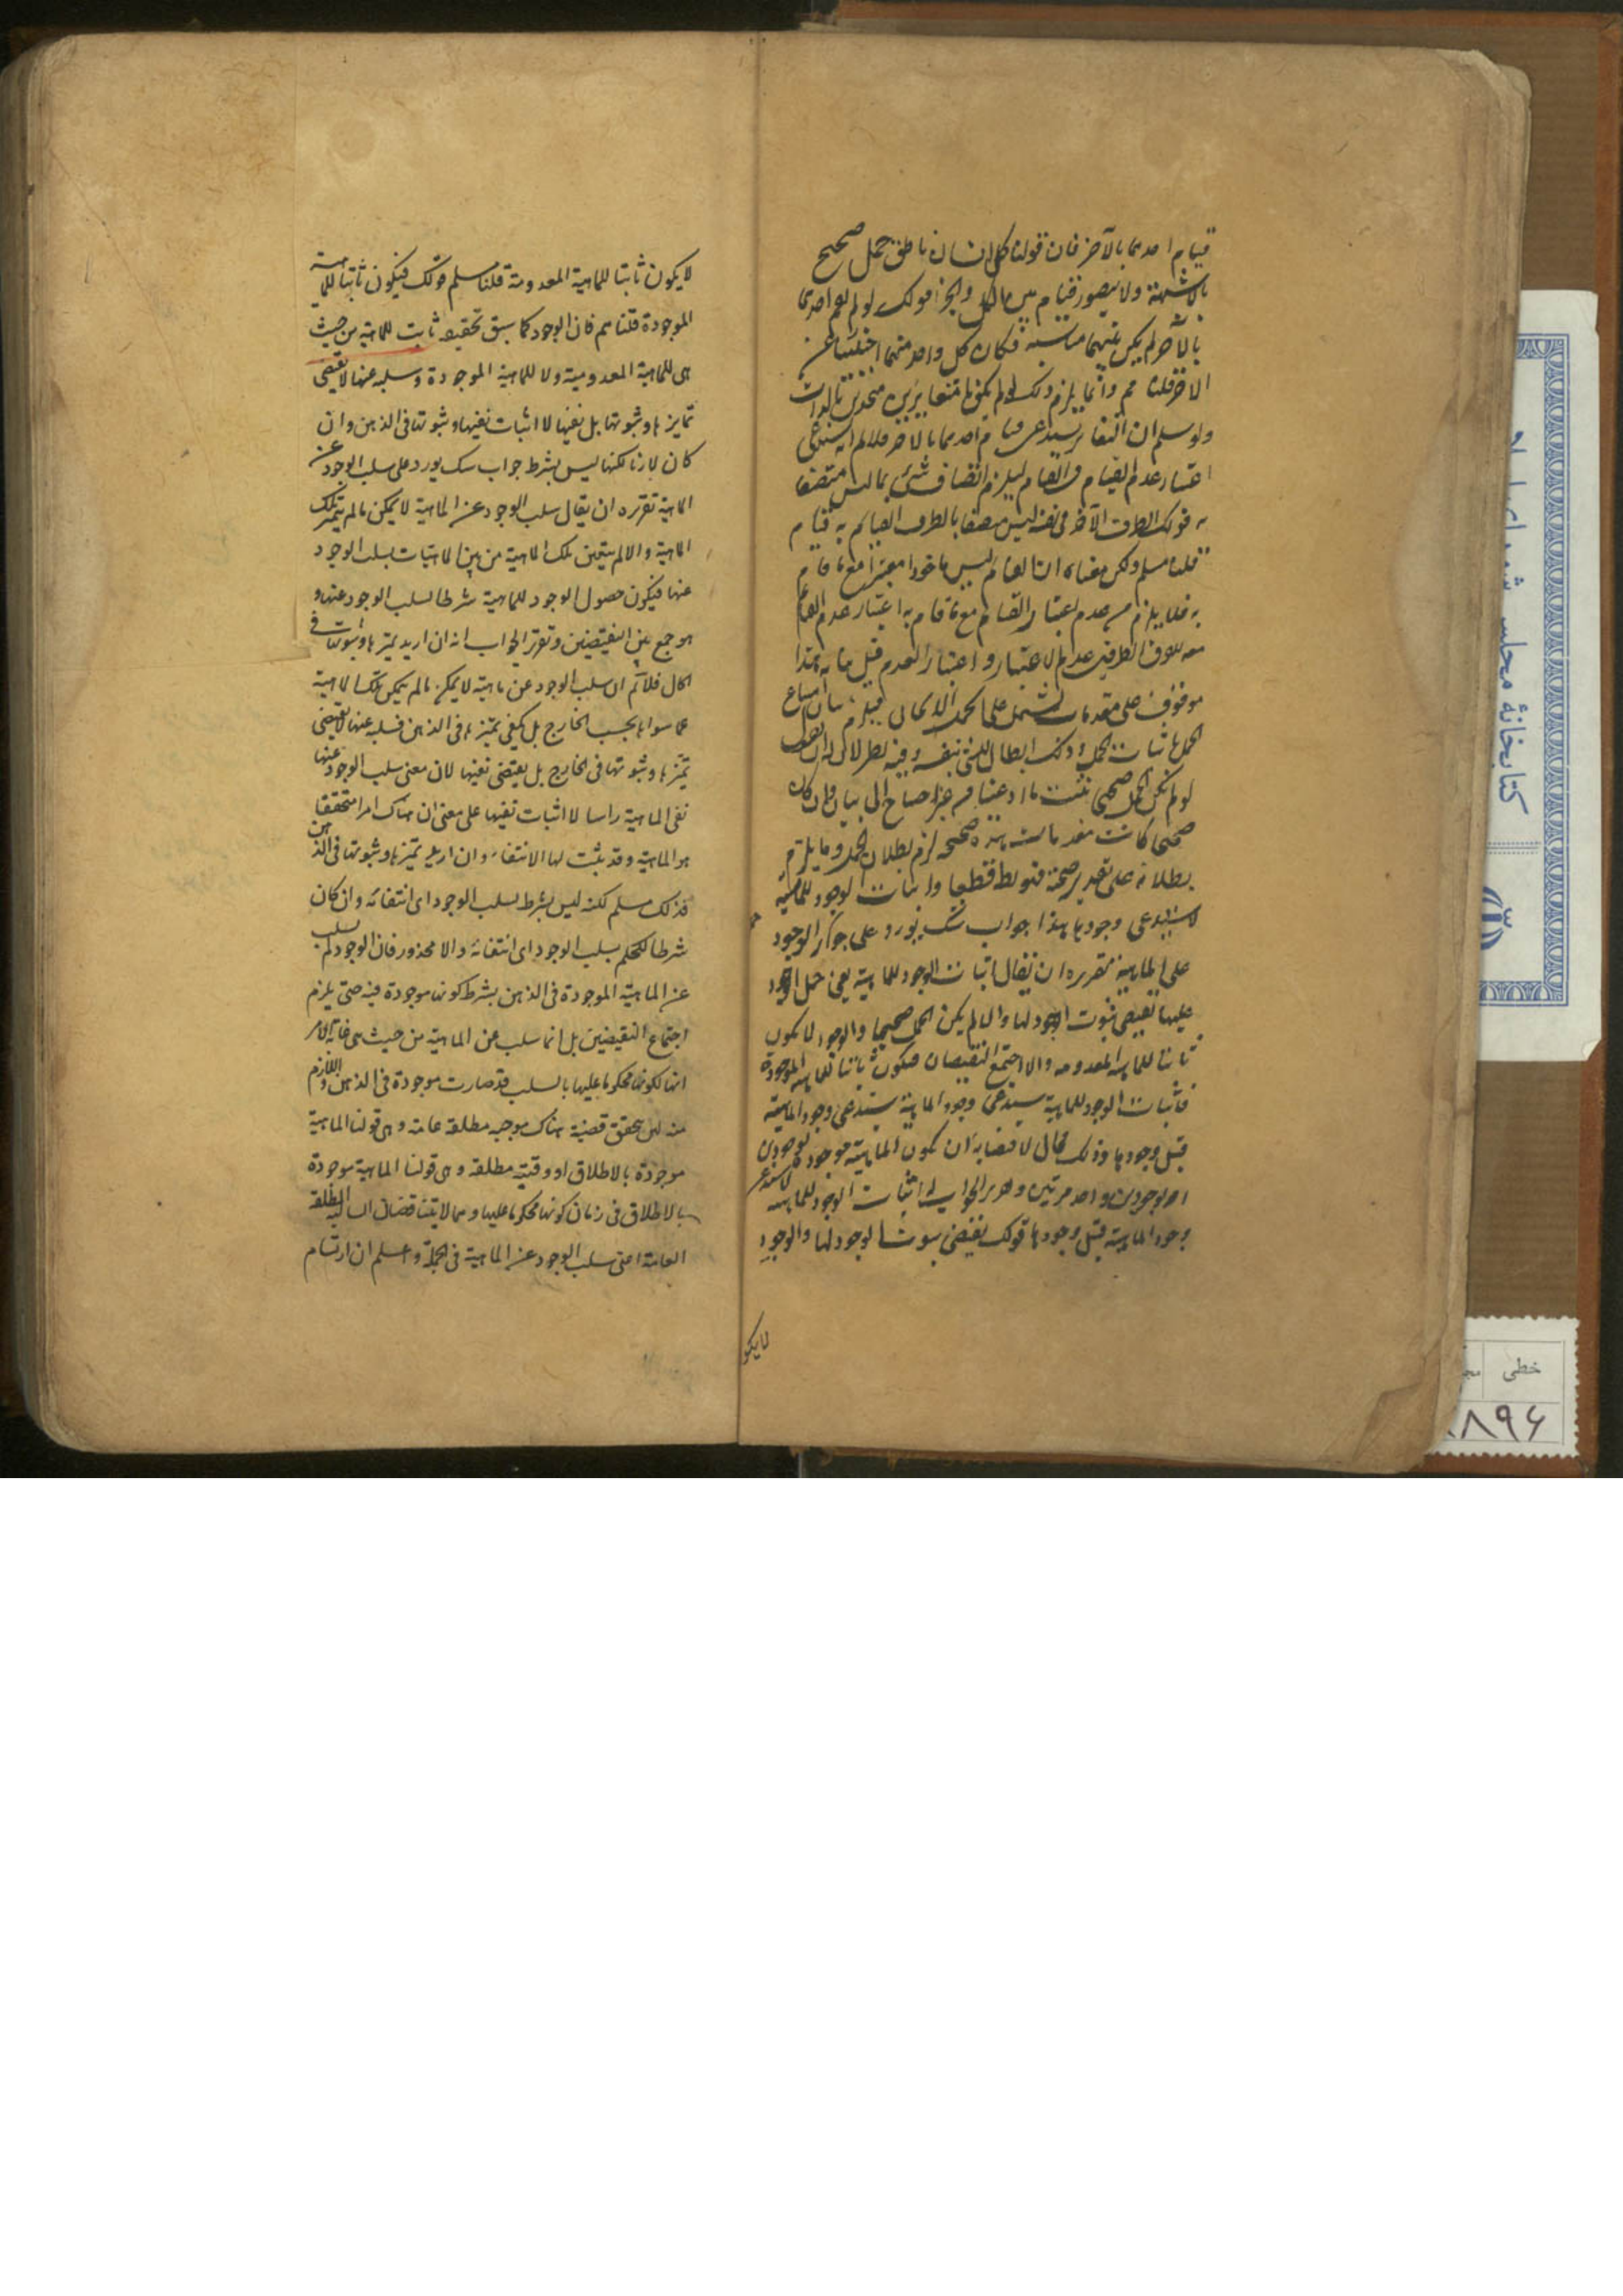 قيام احدهما بالآخر فان قولنا كل انسان ناطق حمل صحيح
بالاشبهة ولا يتصور قيام بين الكل والجزء قولك لو لم يقم احدهما
بالآخر لم يكن بينهما مناسبة فكان كل واحد منهما اجنبيا عن
الآخر قلنا مم وانما يلزم ذلك لو لم يكونا متغايرين متحدين بالذات
ولو سلم ان التغاير يستدعى قيام احدهما بالآخر فلا نم انه يستدعى
اعتبار عدم القيام فى القيام ليلزم اتصاف شئ بما ليس متصفا
به قولك الطرف الآخر فى نفسه ليس متصفا بالطرف القائم به قيام
قلنا مسلم ولكن معناه ان القيام ليس ماخوذا معتبرا مع ما قام
به فلا يلزم من عدم اعتبار القيام مع ما قام به اعتبار عدم القيام
معه للفرق الظاهر بين عدم الاعتبار واعتبار العدم قيل ما ذ هذا
موقوف على مقدمات تشتمل على الحمل الايجابى فيلزم بيان امتناع
الحمل باثبات الحمل وذلك ابطال للشئ بنفسه وفيه نظر لان
لو لم يكن الحمل صحيحا ثبت ما ادعيناه من غير احتياج الى بيان وان كان
صحيحا كانت مقدمات هذه صحيحة لزم بطلان الحمل وما يلزم
بطلانه على تقدير صحته فهو بط قطعا واثبات الوجود للماهية
لا يستدعى وجودها هذا جواب شك يورد على حمل الوجود
على الماهية تقريره ان يقال اثبات الوجود للماهية يعنى حمل الوجود
عليها يقتضى ثبوت الوجود لها والا لم يكن الحمل صحيحا والوجود لا يكون
ثابتا للماهية المعدومة والا اجتمع النقيضان فيكون ثابتا للماهية الموجودة
فاثبات الوجود للماهية يستدعى وجود الماهية يستدعى وجود الماهية
قبل وجودها وذلك محال لاقتضائه ان تكون الماهية موجودة بوجودين
او بوجود واحد مرتين وتقرير الجواب ان اثبات الوجود للماهية لا يستدعى
وجود الماهية قبل وجودها قولك يقتضى ثبوت الوجود لها والوجود
لا يكو
لا يكون ثابتا للماهية المعدومة قلنا مسلم قولك فيكون ثابتا للماهية
الموجودة قلنا مم فان الوجود كما سبق تحقيقه ثابت للماهية من حيث
هى للماهية المعدومية ولا للماهية الموجودة وسلبه عنها لا يقتضى
تمايزها وثبوتها بل نفيها لا اثبات نفيها وثبوتها فى الذهن وان
كان لازما لكنها ليس بشرط جواب شك يورد على سلب الوجود عن
الماهية تقريره ان يقال سلب الوجود عن الماهية لا يمكن ما لم يتميز تلك
الماهية والا لم يتعين تلك الماهية من بين الماهيات بسلب الوجود
عنها فيكون حصول الوجود للماهية شرطا لسلب الوجود عنها و
هو جمع بين النقيضين وتقرير الجواب انه ان اريد تميزها وثبوتها فى
الخارج فلا نم ان سلب الوجود عن ماهية لا يمكن ما لم يكن تلك الماهية
عما سواها بحسب الخارج بل يكفى تميزها فى الذهن فسلبه عنها لا يقتضى
تميزها وثبوتها فى الخارج بل يقتضى نفيها لان معنى سلب الوجود عنها
نفى الماهية راسا لا اثبات نفيها على معنى ان هناك امرا متحققا
هو الماهية وقد يثبت لها الانتفاء وان اريد تميزها وثبوتها فى الذهن
فذلك مسلم لكنه ليس بشرط لسلب الوجود اى انتفائه وان كان
شرطا للحكم بسلب الوجود اى انتفائه والا محذور فان الوجود لم يسلب
عن الماهية الموجودة فى الذهن بشرط كونها موجودة فيه حتى يلزم
اجتماع النقيضين بل انما سلب عن الماهية من حيث هى غاية الامر
انها لكونها محكوما عليها بالسلب قد صارت موجودة فى الذهن واللازم
منه ان يتحقق قضية هناك موجبه مطلقة عامة وهى قولنا الماهية
موجودة بالاطلاق او وقتية مطلقه وهى قولنا الماهية موجودة
بالاطلاق فى زمان كونها محكوما عليها وهما لا يتناقضان السالبة المطلقة
العامة اعنى سلب الوجود عن الماهية فى الجملة واعلم ان ارتسام
كتابخانهٔ مجلس شورای
خطی
۸۹۶